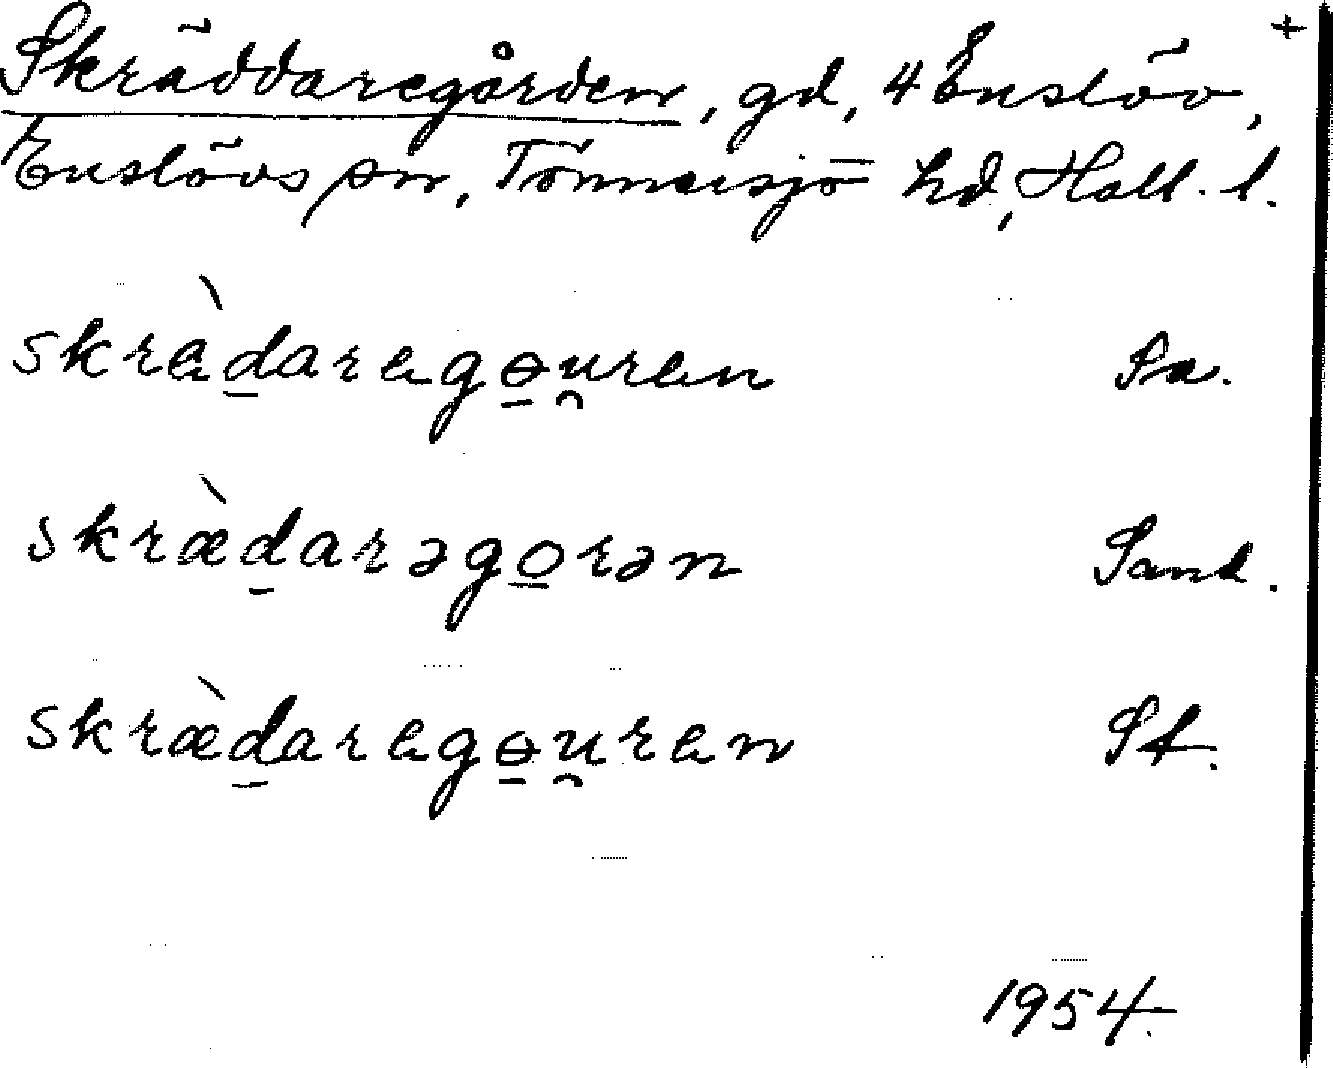 Skräddaregården, gd, 4 Enslöv, +
Enslövs sn, Tönnersjö hd, Hall. l.
skràd̲aregɵ̲u̯ren Sa.
skræ̀d̲arəgo̲rən Sand.
skræ̀d̲aregɵ̲u̯ren Sf.
1954.